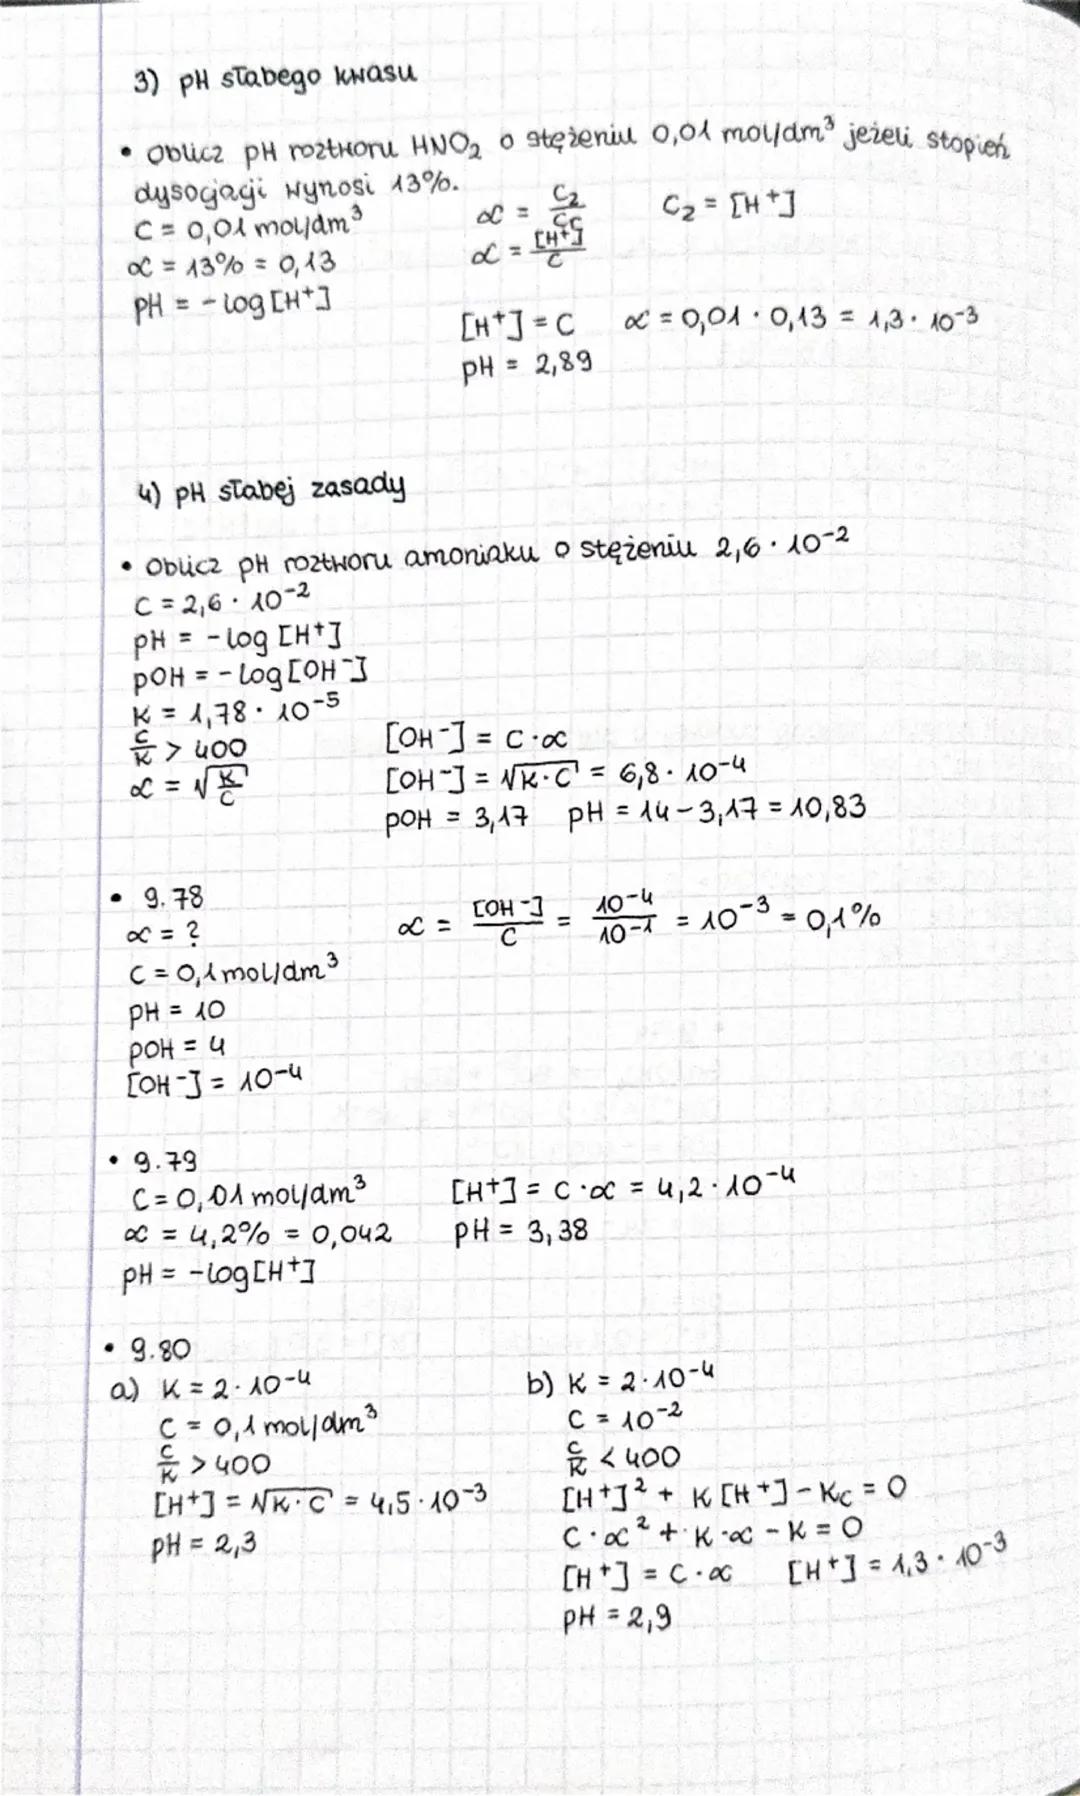 3) pH słabego kwasu
• Oblicz pH roztworu HNO₂ o stężeniu 0,01 mol/dm³ jeżeli stopień
dysocjacji wynosi 13%.
C = 0,01 mol/dm³
α = 13% = 0,13
pH = - log [H⁺]
α = C₂/Cc
C₂ = [H⁺]
α = [H⁺]/C
[H⁺] = C α = 0,01 · 0,13 = 1,3 · 10⁻³
pH = 2,89
4) pH słabej zasady
• Oblicz pH roztworu amoniaku o stężeniu 2,6 · 10⁻²
C = 2,6 · 10⁻²
pH = - log [H⁺]
pOH = - log [OH⁻]
K = 1,78 · 10⁻⁵
C/K > 400
α = √(K/C)
[OH⁻] = C · α
[OH⁻] = √(K·C) = 6,8 · 10⁻⁴
pOH = 3,17 pH = 14 - 3,17 = 10,83
• 9.78
α = ?
C = 0,1 mol/dm³
pH = 10
pOH = 4
[OH⁻] = 10⁻⁴
α = [OH⁻]/C = 10⁻⁴/10⁻¹ = 10⁻³ = 0,1%
• 9.79
C = 0,01 mol/dm³
α = 4,2% = 0,042
pH = - log [H⁺]
[H⁺] = C · α = 4,2 · 10⁻⁴
pH = 3,38
• 9.80
a) K = 2 · 10⁻⁴
C = 0,1 mol/dm³
C/K > 400
[H⁺] = √(K·C) = 4,5 · 10⁻³
pH = 2,3
b) K = 2 · 10⁻⁴
C = 10⁻²
C/K < 400
[H⁺]² + K [H⁺] - Kc = 0
C · α² + K · α - K = 0
[H⁺] = C · α [H⁺] = 1,3 · 10⁻³
pH = 2,9